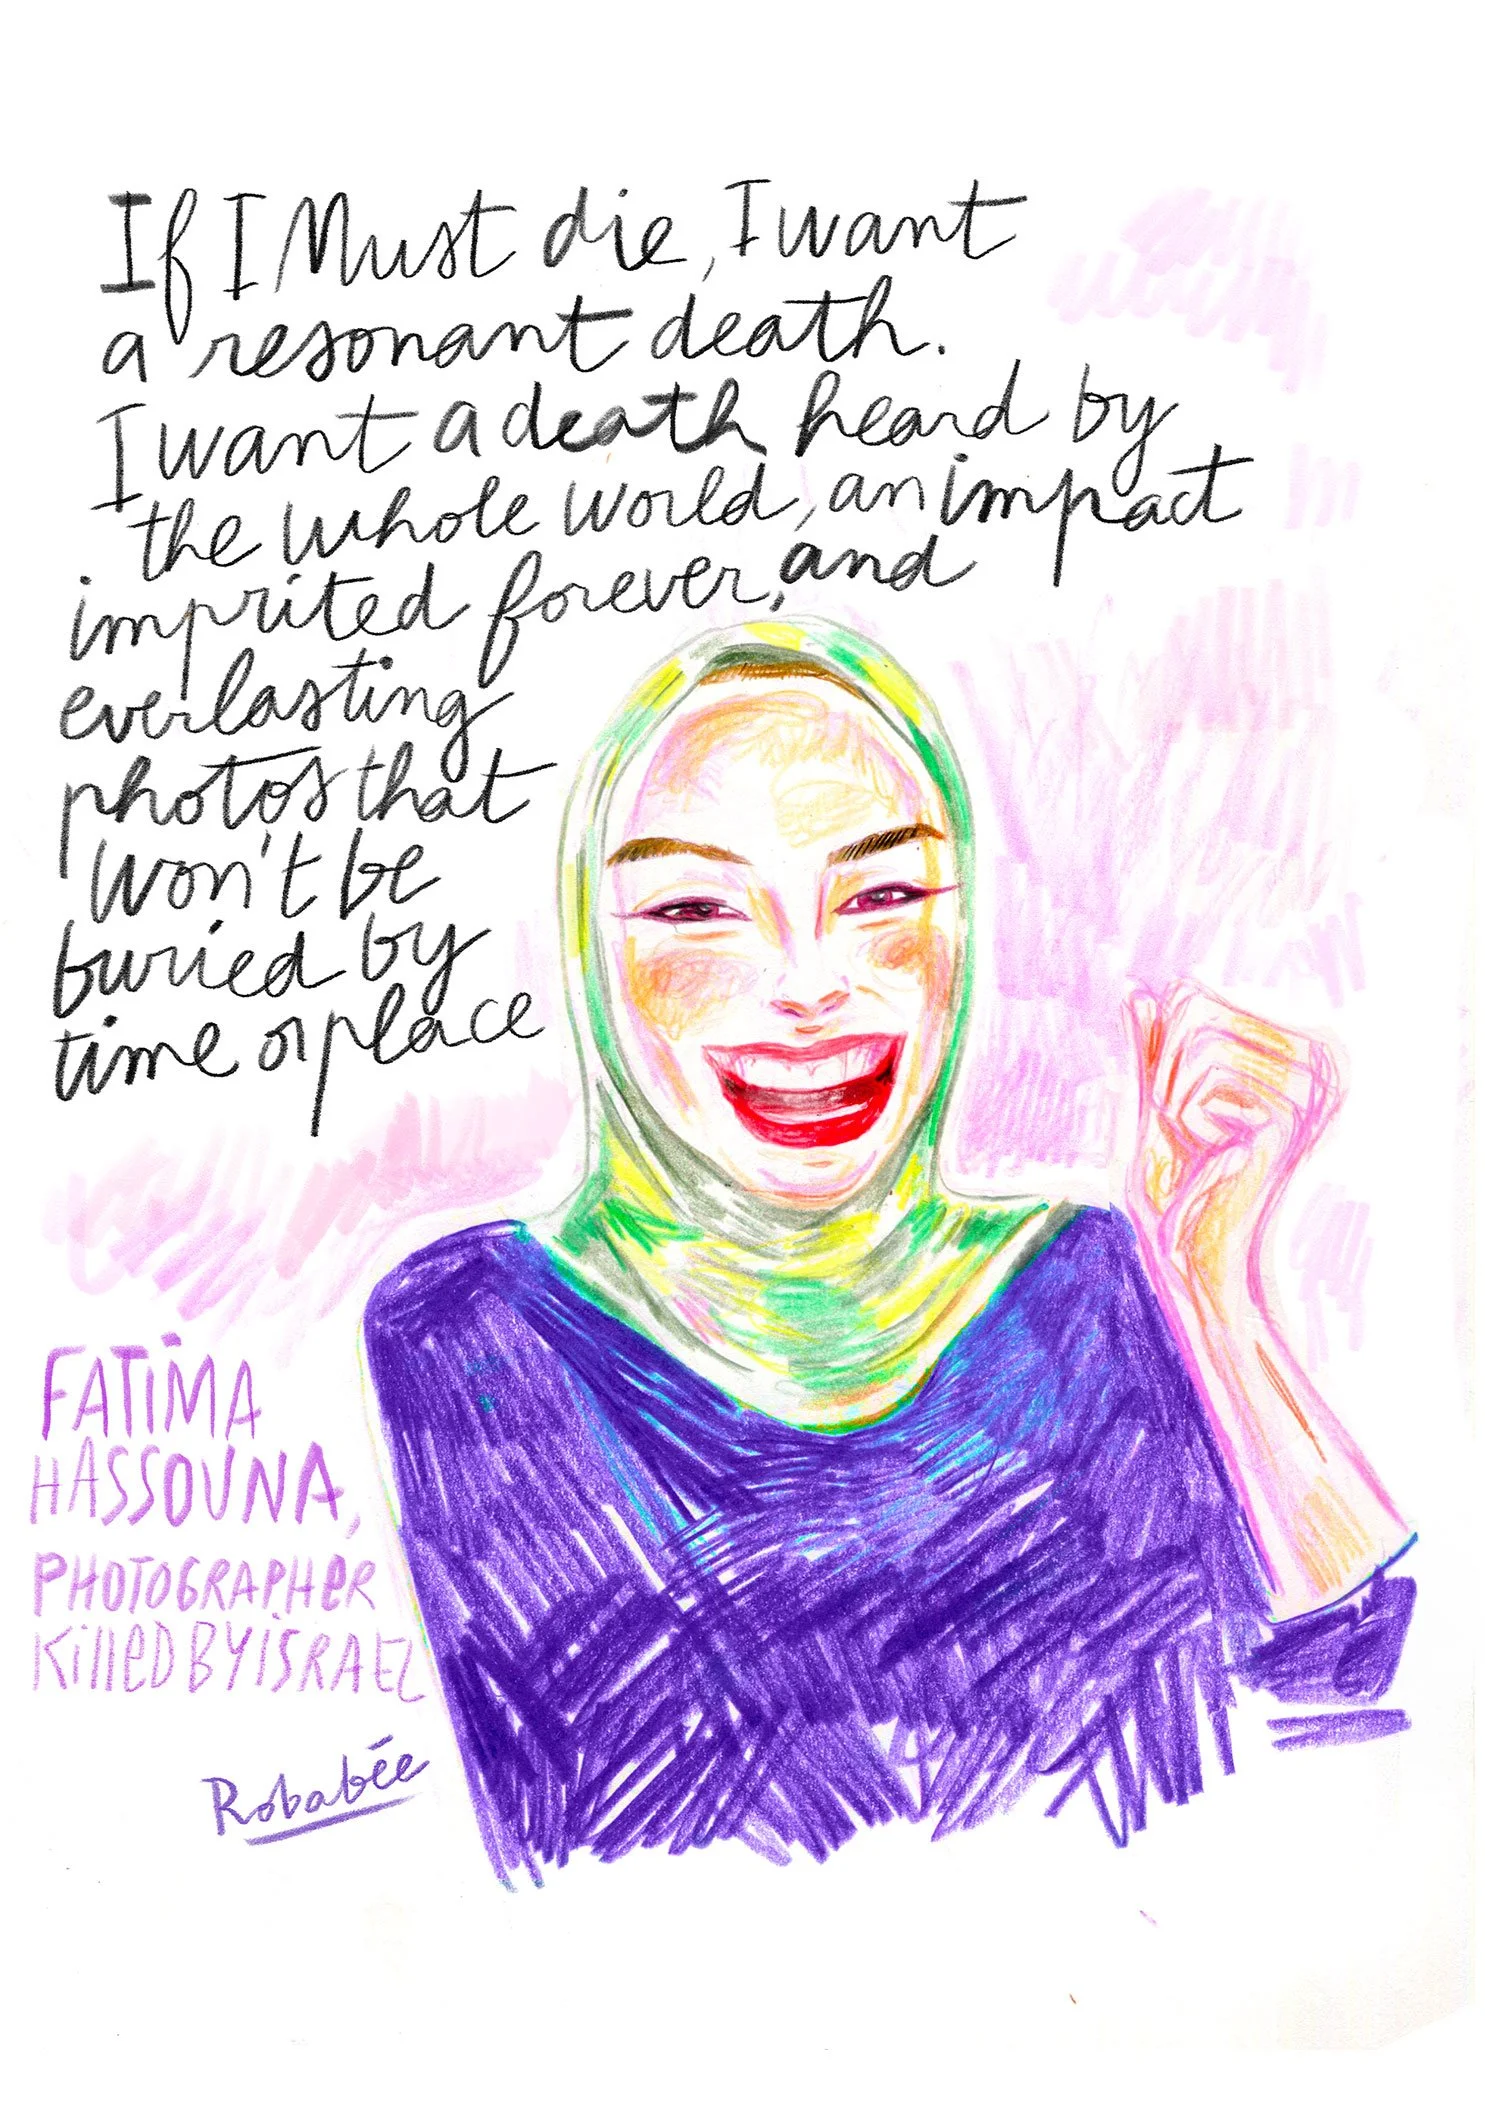 If I Must die, I want
a resonant death.
I want a death heard by
the whole world, an impact
imprited forever, and
everlasting
photos that
won't be
buried by
time or place
FATIMA
HASSOUNA,
PHOTOGRAPHER
KILLED BY ISRAEL
Robabée